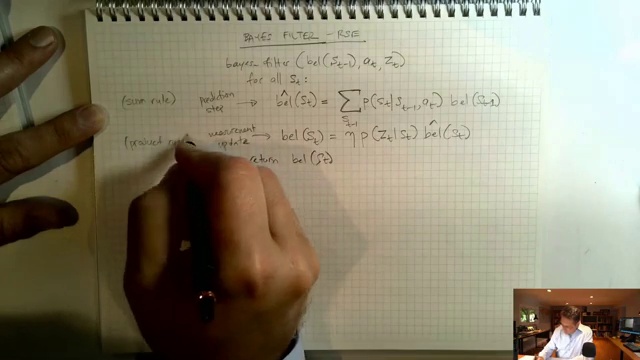 BAYES FILTER - RSE
bayes filter ( bel(s_{t-1}), a_t, z_t )
for all s_t :
(sum rule) prediction step → b̂el(s_t) = ∑_{s_{t-1}} p(s_t | s_{t-1}, a_t) bel(s_{t-1})
(product measurement update → bel(s_t) = η p(z_t | s_t) b̂el(s_t)
return bel(s_t)